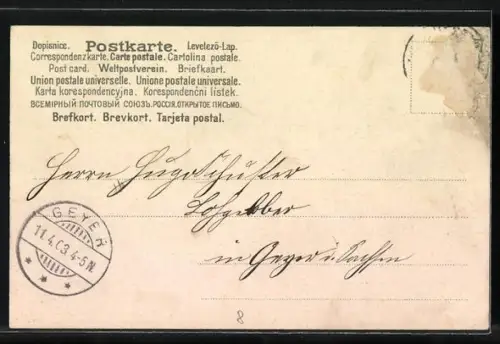 Dopisnice. Postkarte. Levelező-Lap.
Correspondenzkarte. Carte postale. Cartolina postale.
Post card. Weltpostverein. Briefkaart.
Union postale universelle. Unione postale universale.
Karta korespondencyjna. Korespondenční lístek.
ВСЕМІРНЫЙ ПОЧТОВЫЙ СОЮЗЪ. РОССІЯ. ОТКРЫТОЕ ПИСЬМО.
Brefkort. Brevkort. Tarjeta postal.
Herrn Hugo Schuster
Lohgerber
in Geyer i. Sachsen
GEYER
11.4.03 4-5N
8